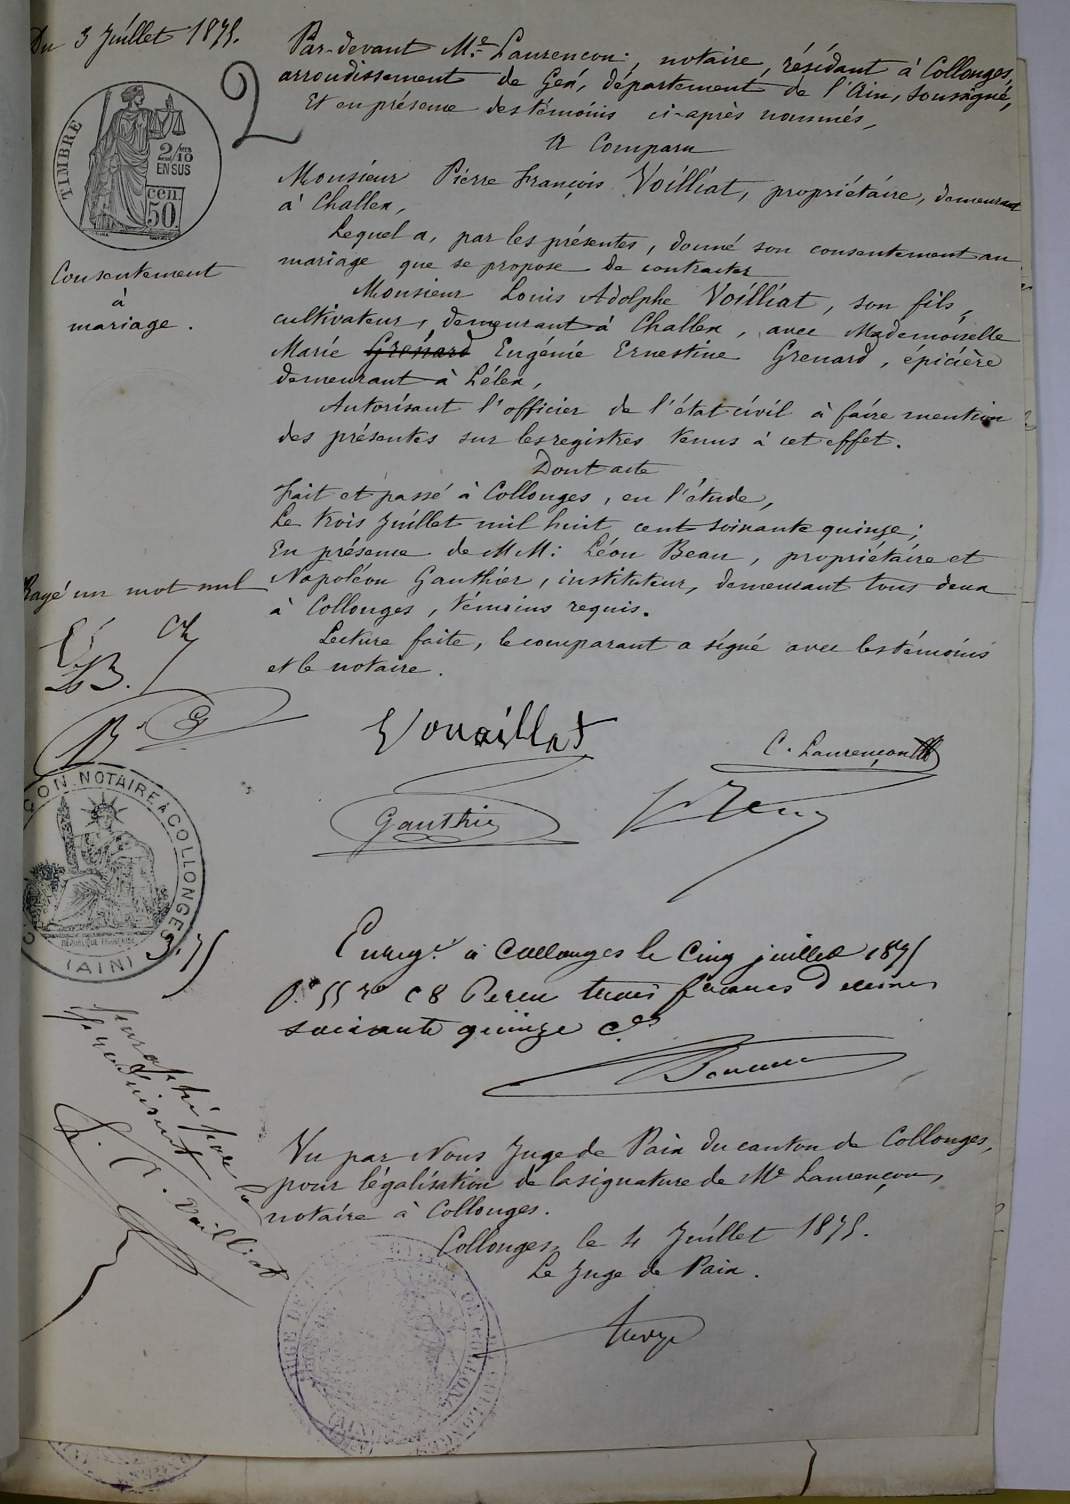 Du 3 Juillet 1875.
2
TIMBRE
2/10
EN SUS
cen.
50
Consentement
à
mariage.
Par-devant Me Laurençon, notaire, résidant à Collonges,
arrondissement de Gex, département de l'Ain, soussigné,
Et en présence des témoins ci-après nommés,
A Comparu
Monsieur Pierre François Voilliat, propriétaire, demeurant
à Challex,
Lequel a, par les présentes, donné son consentement au
mariage que se propose de contracter
Monsieur Louis Adolphe Voilliat, son fils,
cultivateur, demeurant à Challex, avec Mademoiselle
Marie Grenard Eugénie Ernestine Grenard, épicière
demeurant à Lélex,
Autorisant l'officier de l'état civil à faire mention
des présentes sur les registres tenus à cet effet.
Dont acte
Fait et passé à Collonges, en l'étude,
Le trois Juillet mil huit cent soixante quinze;
En présence de MM: Léon Beau, propriétaire et
Napoléon Gauthier, instituteur, demeurant tous deux
à Collonges, témoins requis.
Lecture faite, le comparant a signé avec les témoins
et le notaire.
Rayé un mot nul
LB.
Vouaillat
C. Laurençon
Gauthier
CON. NOTAIRE A COLLONGES
RÉPUBLIQUE FRANÇAISE
(AIN)
3.75
Enregé. à Collonges le cinq juillet 1875
fo 55 ro c 8 Reçu trois francs Décimes
soixante quinze ces
Vu par Nous Juge de Paix du canton de Collonges,
pour légalisation de la signature de Me Laurençon,
notaire à Collonges.
Collonges, le 4 Juillet 1875.
Le Juge de Paix.
paraphé par le
L. A. Voilliat